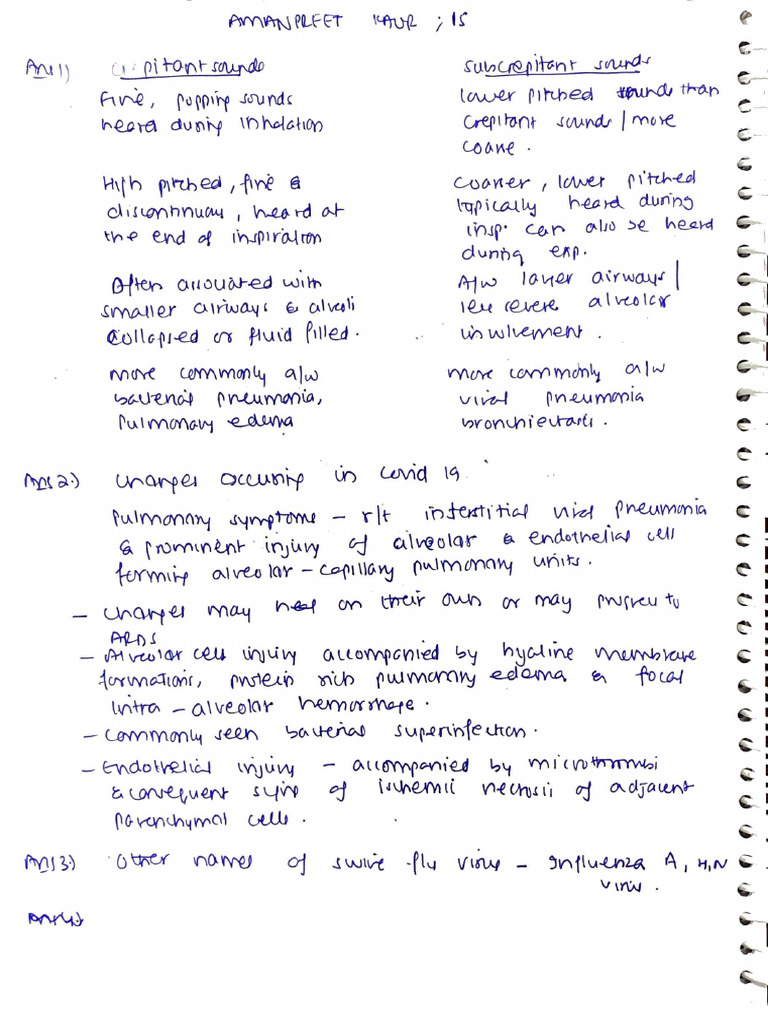 AMANPREET KAUR ; 15
Ans 1) crepitant sounds
Fine, popping sounds
heard during inhalation
High pitched, fine &
discontinuous, heard at
the end of inspiration
Often associated with
smaller airways & alveoli
collapsed or fluid filled.
more commonly a/w
bacterial pneumonia,
pulmonary edema
subcrepitant sounds
lower pitched sounds than
crepitant sounds / more
coarse.
coarser, lower pitched
typically heard during
insp. can also be heard
during exp.
A/w larger airways /
less severe alveolar
involvement.
more commonly a/w
viral pneumonia
bronchiectasis.
Ans 2.) Changes occuring in Covid 19.
Pulmonary symptoms - r/t interstitial viral pneumonia
& prominent injury of alveolar & endothelial cell
forming alveolar - capillary pulmonary units.
- Changes may heal on their own or may progress to
ARDS
- Alveolar cell injury accompanied by hyaline membrane
formations, protein rich pulmonary edema & focal
intra - alveolar hemorrhage.
- Commonly seen bacterial superinfection.
- Endothelial injury - accompanied by microthrombi
& consequent signs of ischemic necrosis of adjacent
parenchymal cells.
Ans 3.) Other names of swine flu virus - Influenza A, H1N1
virus.